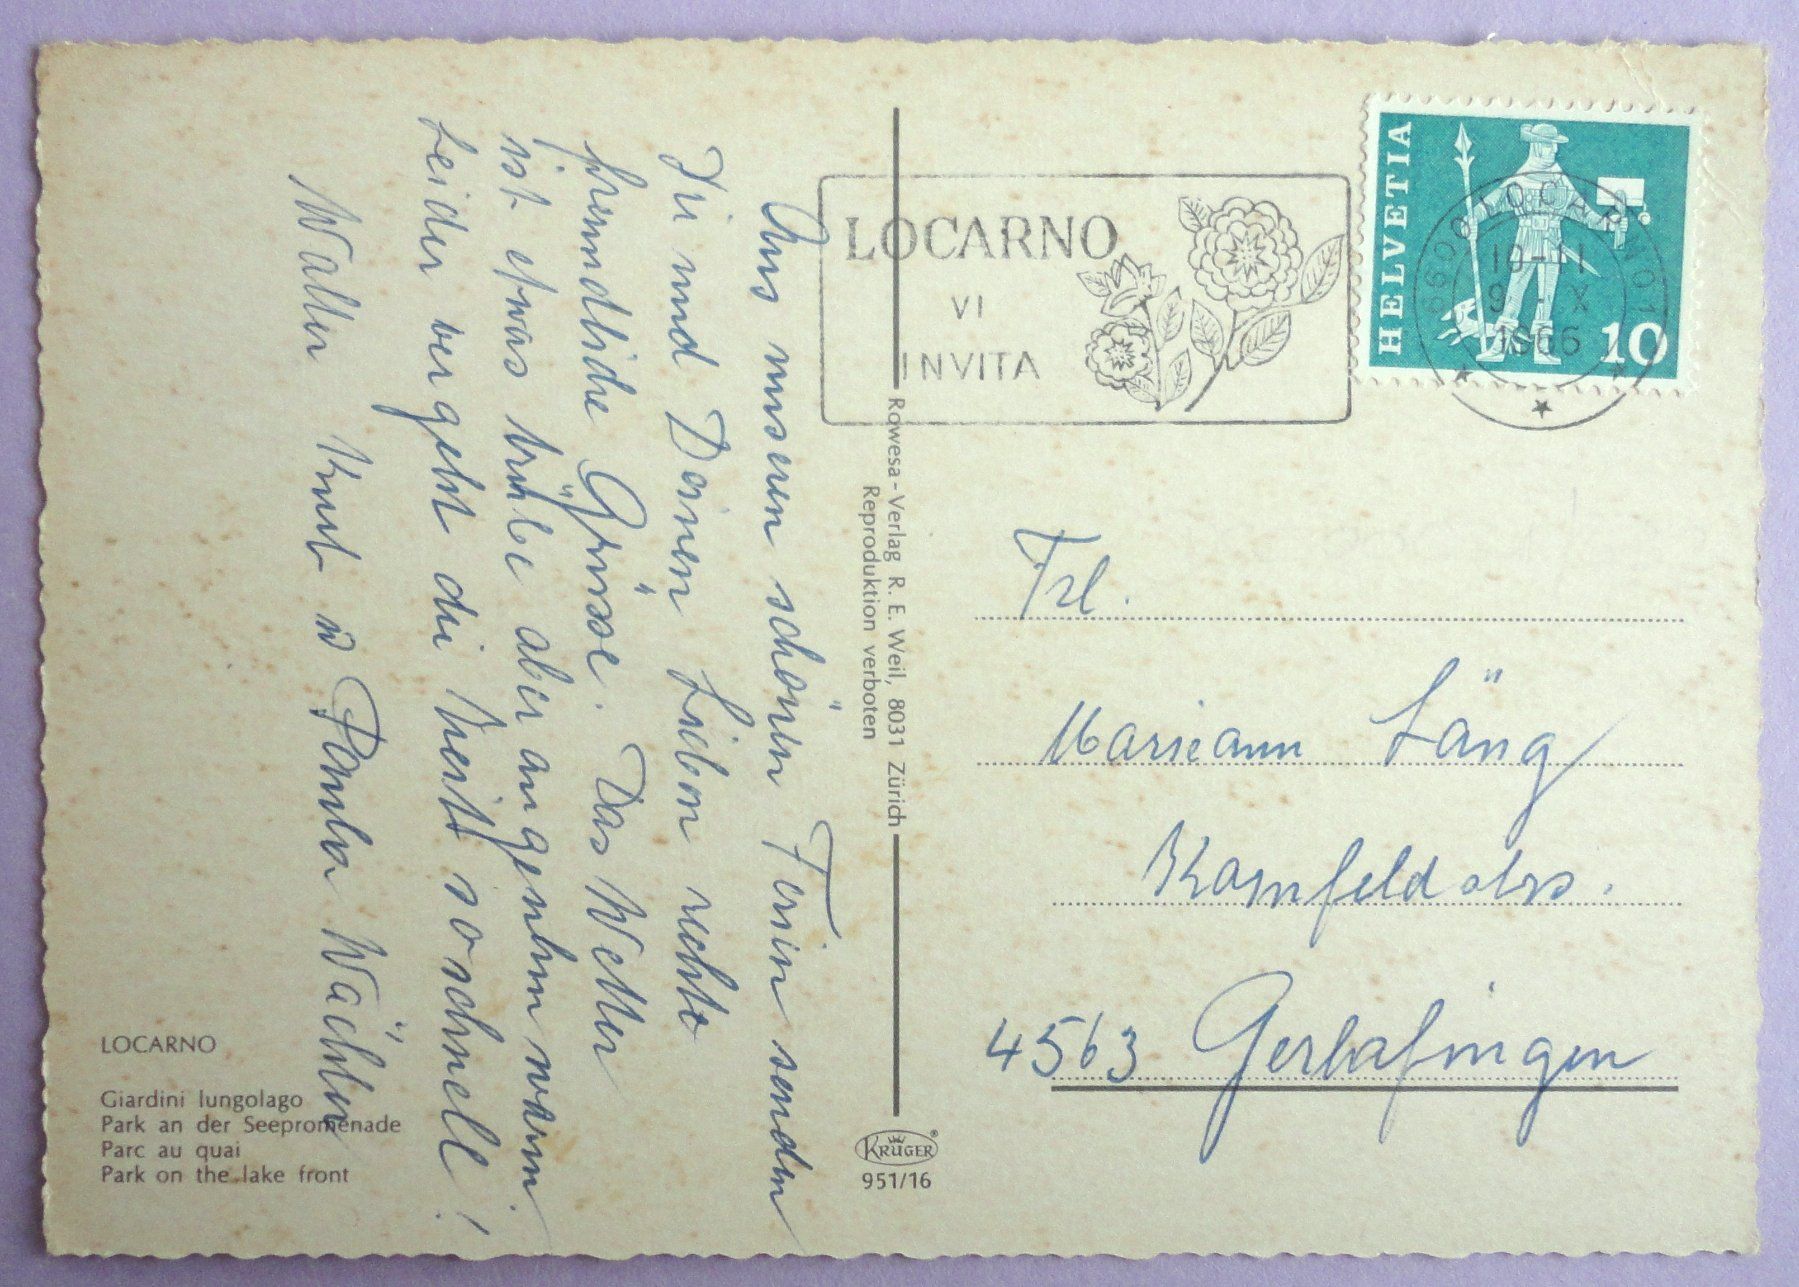 Aus unseren schönen Ferien senden
Dir und Deinen Lieben recht
freundliche Grüsse. Das Wetter
ist etwas trübe aber angenehm warm
Leider vergeht die Zeit so schnell!
Walter Knut u. Wächter
LOCARNO
VI
INVITA
HELVETIA
10
6600 LOCARNO 1
10-11
9.-X
1966
Frl.
Marieann Läng
Kornfeldstrs.
4563 Gerlafingen
Rowesa-Verlag R. E. Weil, 8031 Zürich
Reproduktion verboten
KRÜGER
951/16
LOCARNO
Giardini lungolago
Park an der Seepromenade
Parc au quai
Park on the lake front